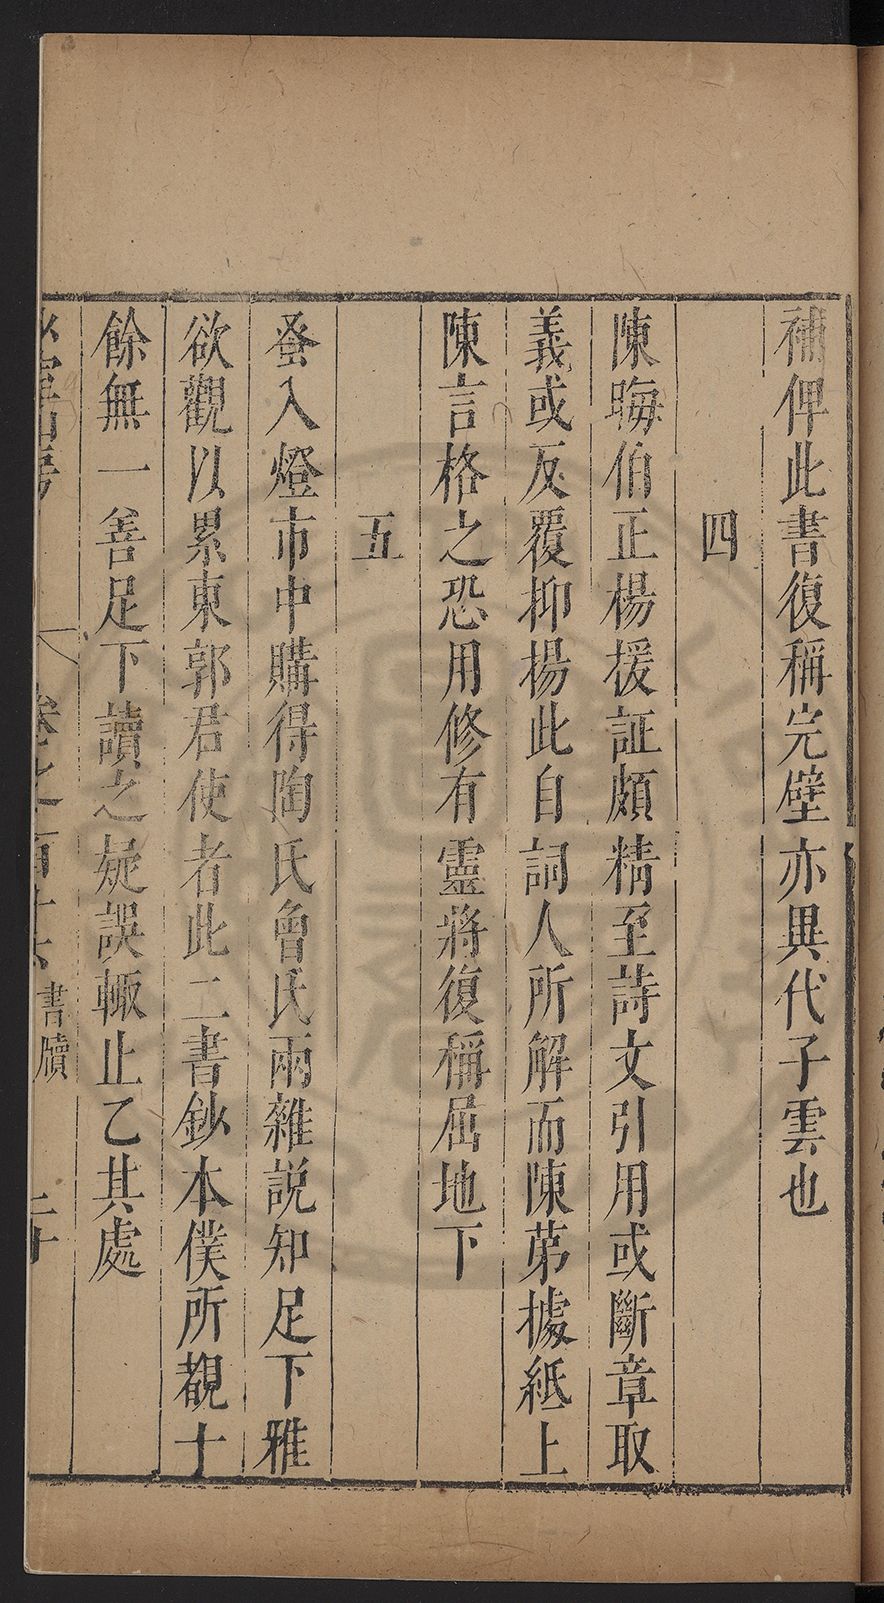 補俾此書復稱完壁亦異代子雲也
四
陳晦伯正楊援証頗精至詩文引用或斷章取
義或反覆抑揚此自詞人所解而陳苐據紙上
陳言格之恐用修有靈將復稱屈地下
五
蚤入燈市中購得陶氏曾氏兩雜説知足下雅
欲觀以累東郭君使者此二書鈔本僕所覩十
餘無一善足下讀之疑誤輙止乙其處
卷之百十六 書牘 二十